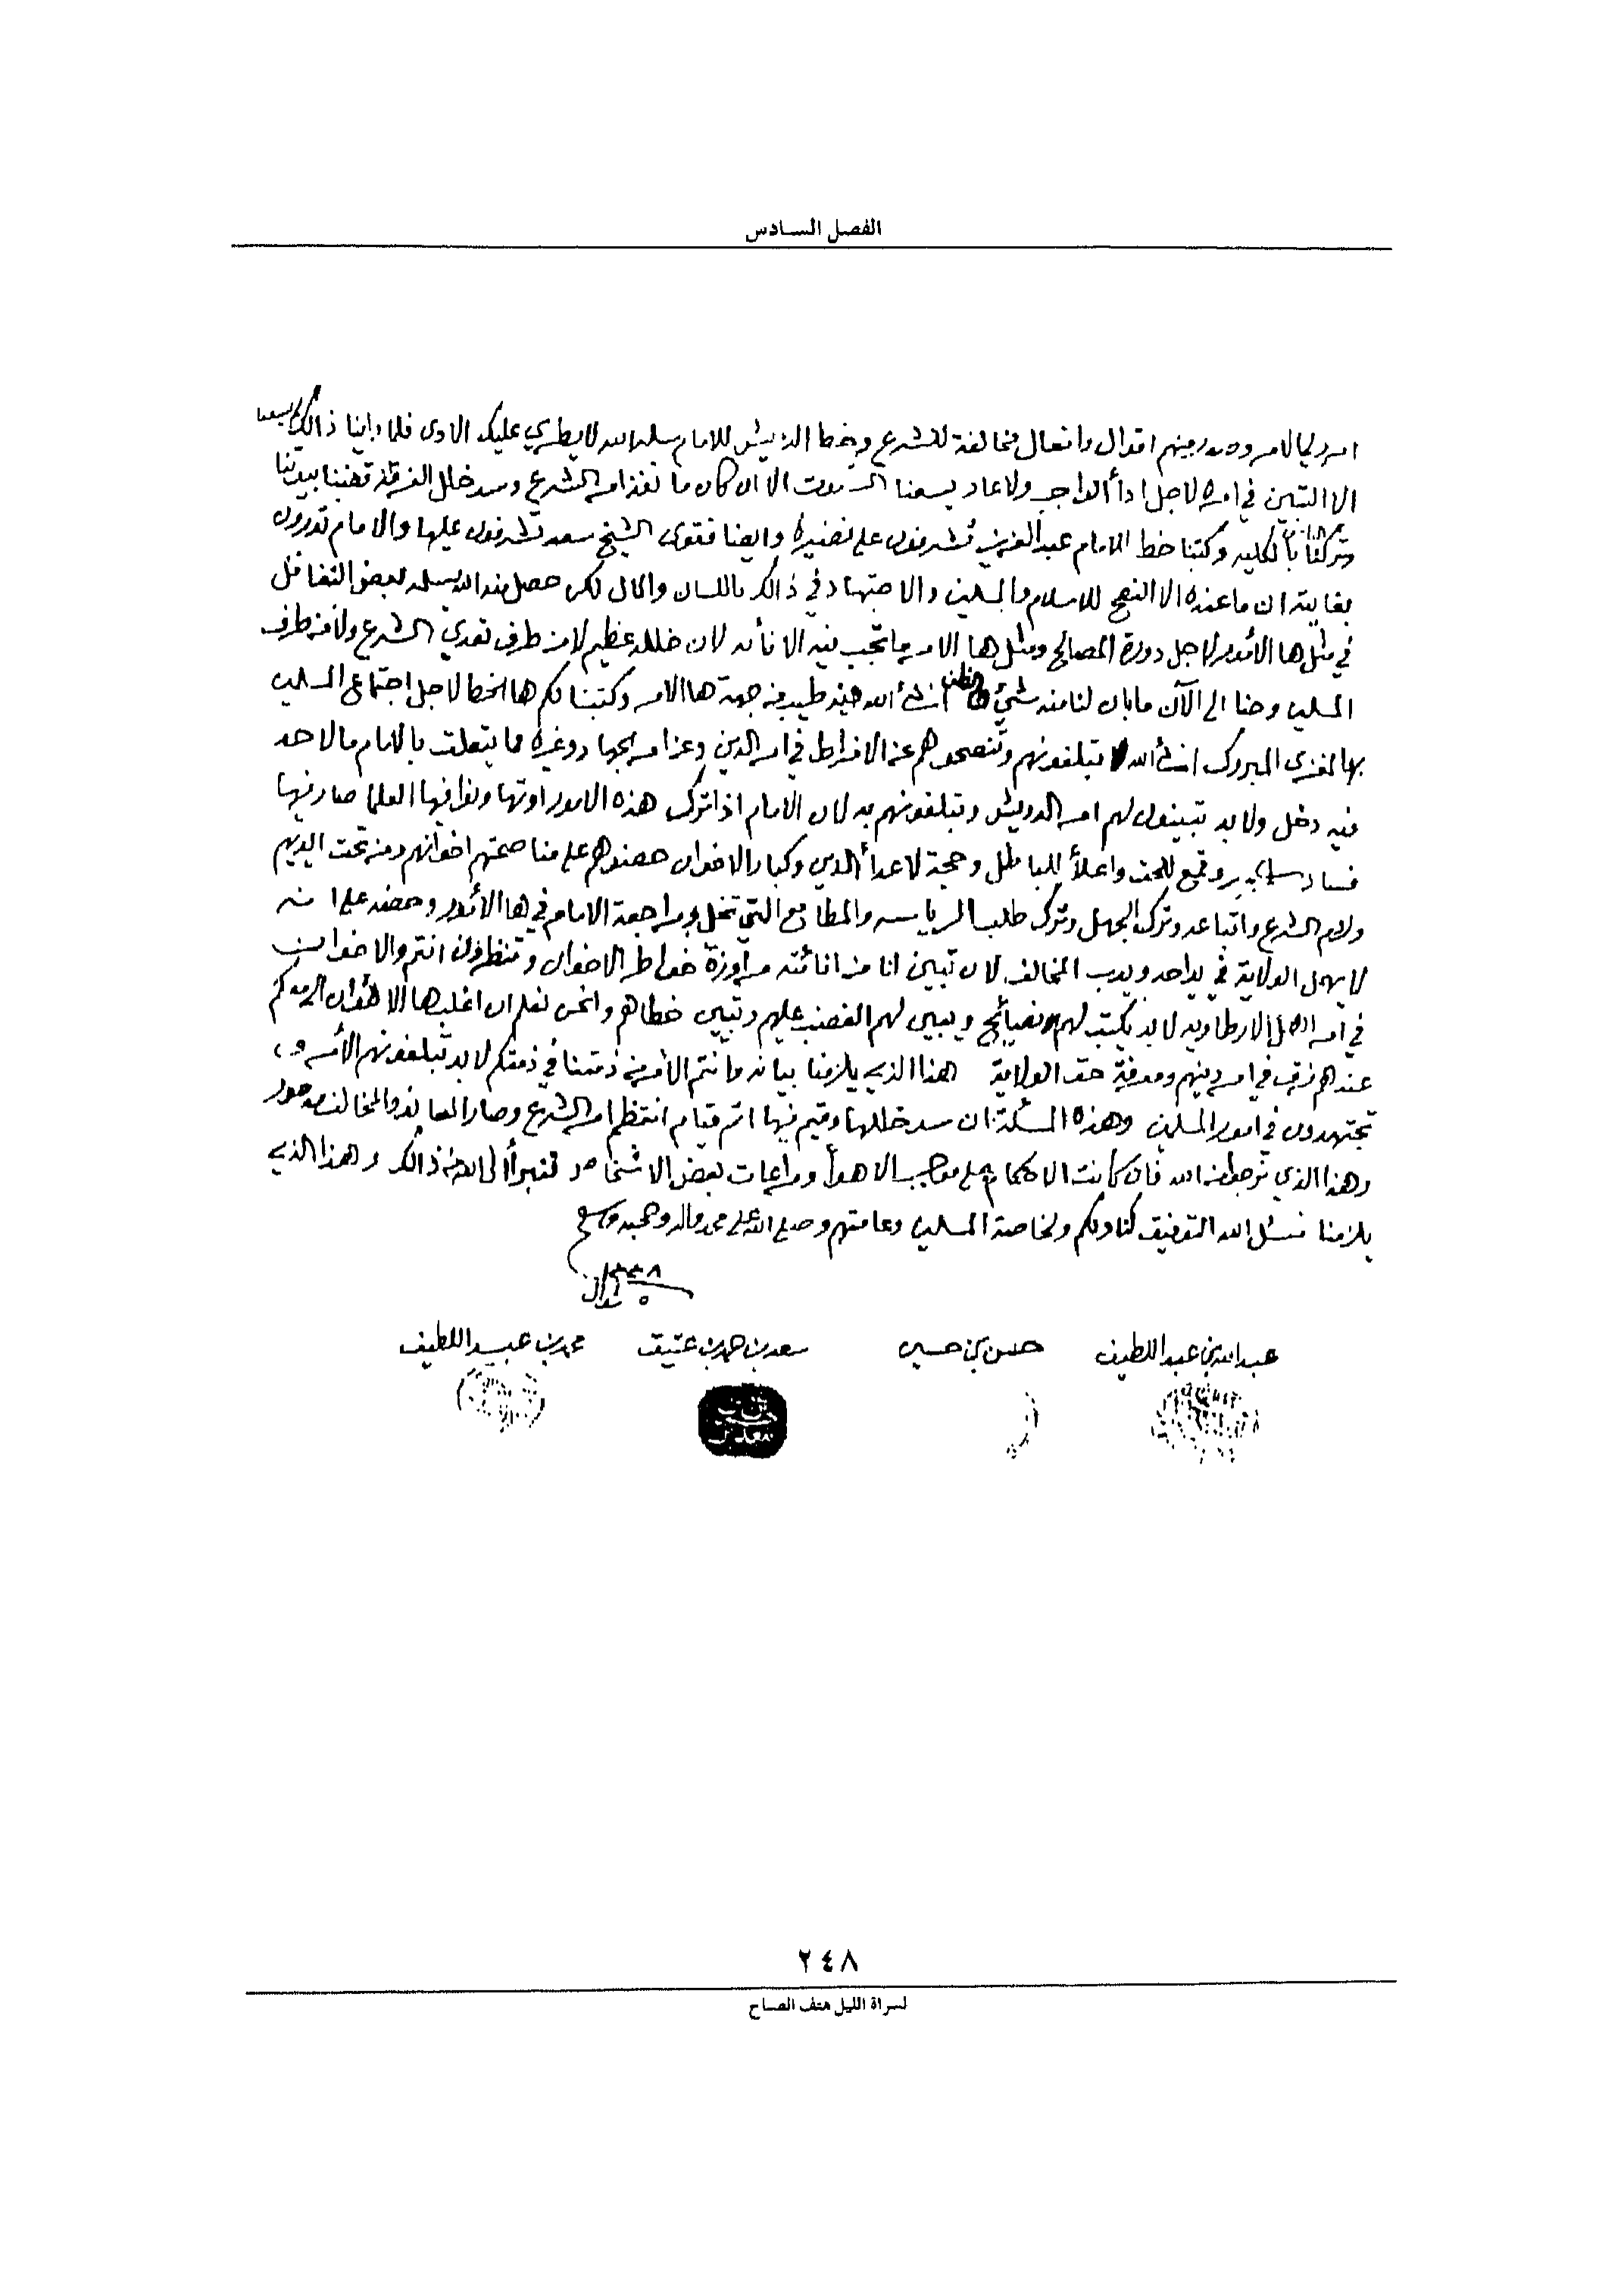 الفصل السادس
امر دين الامر وصدر منهم اقوال وافعال مخالفة للشرع وخط الدويش للامام سلمه الله لا يطري عليك الادى فلما راينا ذالك
الا التبين في امره لاجل اداأ الواجب ولا عاد يسعنا السكوت الا ان كان ما نفذ امر الشرع وسد خلل الفرقة تجنبنا بيوتنا
وتركنا بالكليه وكتبنا خط للامام عبدالعزيز تشرفون على نضيره وايضا فتوى الشيخ سعد تشرفون عليها والامام تدرون
بغايته ان ما عنده الا النصح للاسلام والمسلمين والاجتهاد في ذالك باللسان والمال لكن حصل منه الله يسلمه بعض التغافل
في مثل ها الأمور لاجل دورة المصالح ومثل ها الامر ما تجب فيه الا لان خلله عظيم لا من طرف تعدي الشرع ولا من طرف
المسلمين وحنا الى الآن ما بان لنا منه شيئ انشأ الله طيب من جهة ها الامر وكتبنا لكم ها الخط لاجل اجتماع المسلمين
بها لمغزى المبروك انشأ الله تبلغونهم وتنصحوهم عن الافراط في امر الدين وعن امر الجهاد وغيره مما يتعلق بالامام ما لاحد
فيه دخل ولا بد تبينون لهم امر الدويش وتبلغونهم به لان الامام اذا ترك هذه الامور اوتها ون فيها العلما صار فيها
فساد كبير وقمع للحق واعلاأ للباطل وحجة لاعداأ الدين وكبار الاخوان حضوهم على مناصحتهم اخوانهم ومن تحت ايديهم
ولزم الشرع واتباعه وترك الجهل وترك طلب الرياسه والمطامع التي تخل ومراجعة الامام في ها الأمور وحضه على انه
لا يهمل الولاية في يد احد ويدب المخالف لان تبين انا من خواطر الاخوان وتنظرون انتم والاخوان
في امر اهل الارطاويه لا بد يكتب لهم نصيائح ويبين لهم الغضب عليهم وتبيين خطاهم وانحن نعلم ان اغلب ها الاخوان
عندهم في امر دينهم ومعرفة حق الولاية هذا الذي يلزمنا بيانه وانتم الأمر من ذمتنا في ذمتكم لا بد تبلغونهم الأمر و
تجتهدون في امور المسلمين وهذه المسئلة ان سد خللها وقيم فيها اتم قيام انتظم امر الشرع وصار المعاند والمخالف مدحور
وهذا الذي نرجو من الله فان كانت الاحكام على موجب الاهوأ ومراعات بعض الاشخاص فنبرأ الى الله من ذالك وهذا الذي
يلزمنا نسئل الله التوفيق لنا ولكم ولخاصة المسلمين وعامتهم وصلى الله على محمد واله وصحبه وسلم
١٣٣٨
٥ شوال
عبدالله بن عبداللطيف حسن بن حسين سعد بن حمد بن عتيق محمد بن عبداللطيف
٢٤٨
لسراة الليل هتف الصباح